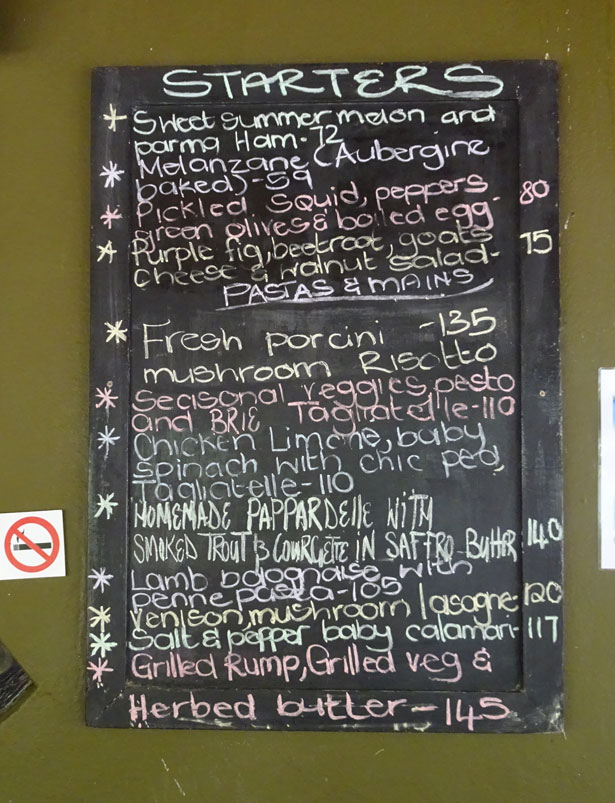 STARTERS
* Sweet summer melon and
parma Ham - 72
* Melanzane (Aubergine
baked) - 59
* Pickled Squid, peppers
green olives & boiled egg - 80
* Purple fig, beetroot, goats
Cheese & walnut salad - 75
PASTAS & MAINS
* Fresh porcini - 135
mushroom Risotto
* Seasonal veggies, pesto
and BRIE Tagliatelle - 110
* Chicken Limone, baby
spinach with chic pea,
Tagliatelle - 110
* HOMEMADE PAPPARDELLE WITH
SMOKED TROUT & COURGETTE IN SAFFRO BUTTER 140
* Lamb bolognaise with
penne pasta - 105
* Venison, mushroom lasagne 120
* Salt & pepper baby calamari - 117
* Grilled Rump, Grilled veg &
Herbed butter - 145